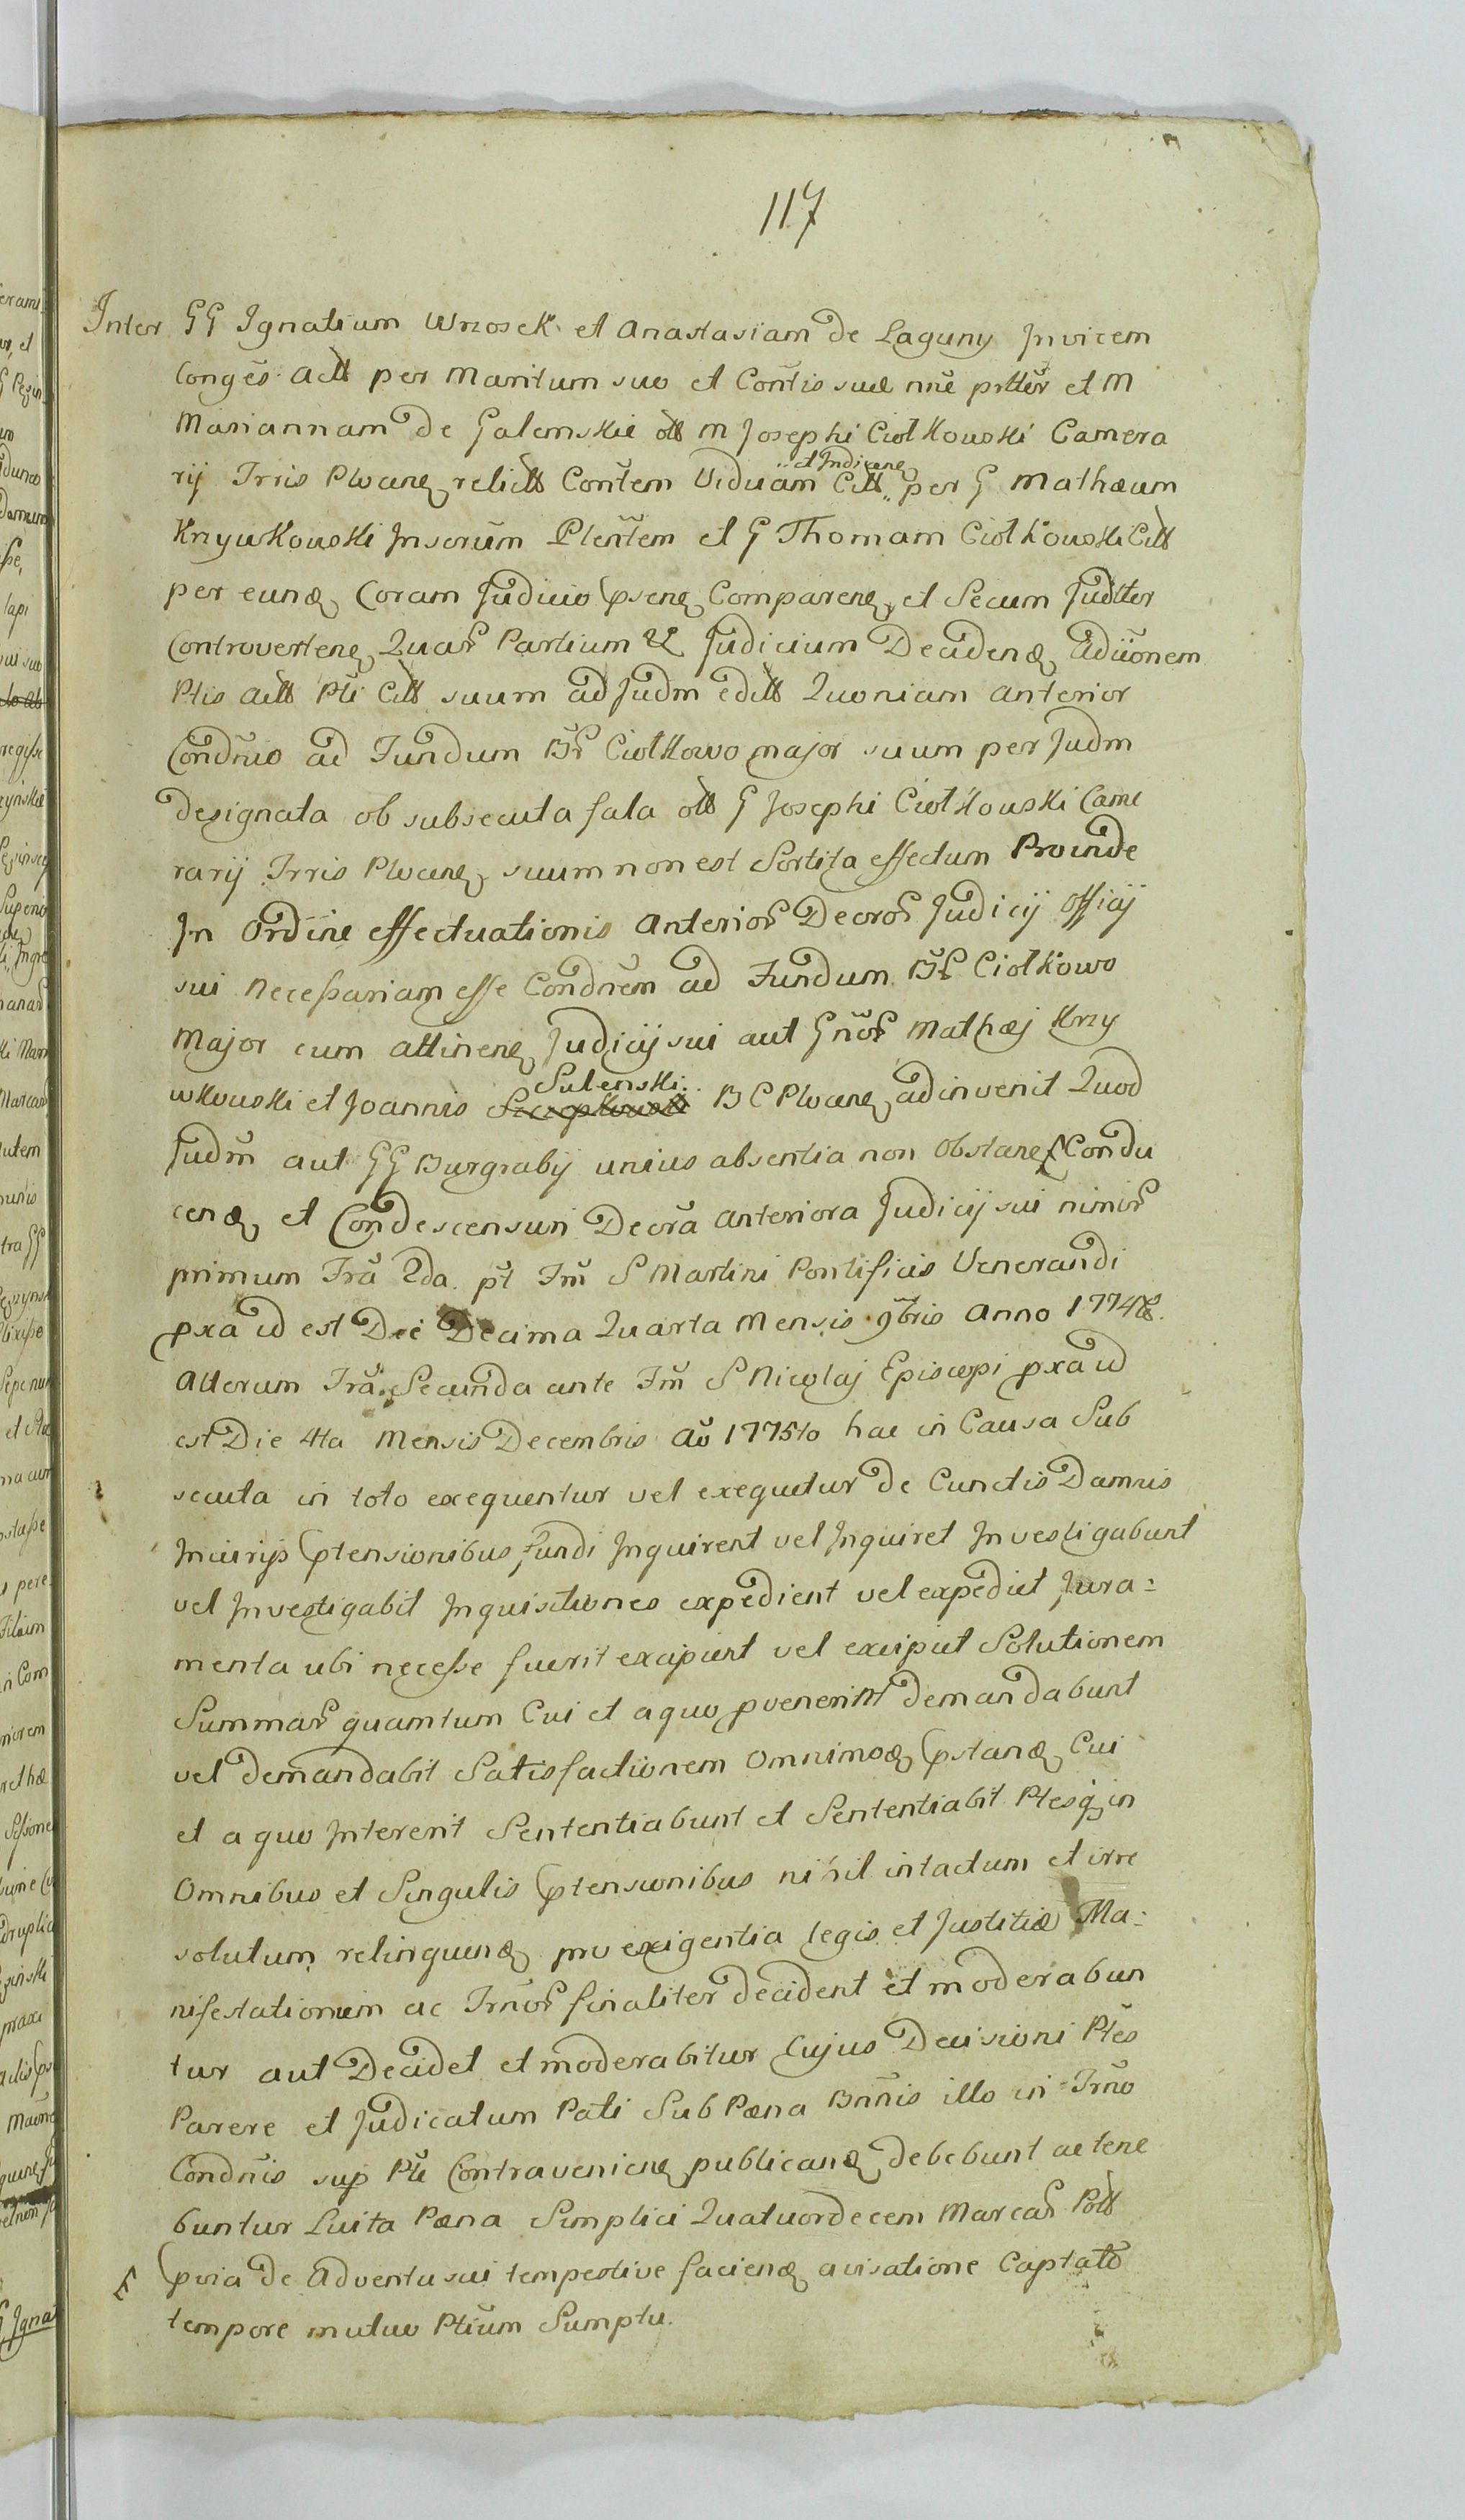 117
Inter GG Ignatium Wrzosek et Anastasiam de Laguny Invicem
Conges Actt per Maritum suo et Contis suæ nne pntter et M
Mariannam de Galemskie ott M Josephi Ciołkowski Camera
rij Trris Plocene relictt Contem Viduam Citt per G Mathæum
et Indigene
Krzywkowski Inserum Plentem et G Thomam Ciołkowski Citt
per eund Coram Judicio psene Comparene et Secum Juditter
Controvertene Quar Partium & Judicium Decidend Adiionem
Ptis Actt Pti Citt suum ad Judm editt Quoniam anterior
Condnio ad Fundum Br Ciołkowo major suum per Judm
Designata ob subsecuta fata ott G Josephi Ciołkowski Came
rarij Trris Plocene suum non est Sortita effectum Proinde
In Ordine effectuationis Anterior Decror Judicij Officij
sui Necessariam esse Condnem ad Fundum Br Ciołkowo
Major cum attinene Judicij sui aut Gnor Mathæj Krzy
wkowski et Joannis Sulenski B C Plocene adinvenit Quod
Judm aut GG Burgrabij unius absentia non Obstane Condu
cend et Condescensuri Decra Anteriora Judicij sui nimir
primum Fra 2da pt Fm S Martini Pontificis Venerandi
pxa id est Die Decima Quarta Mensis 9bris Anno 1774
Alterum Fra Secunda ante Fm S Nicolaj Episcopi pxa id
est Die 4ta Mensis Decembris Ao 1775to hac in Causa Sub
secuta in toto exequentur vel exequetur de Cunctis Damnis
Iniurijs ptensionibus fundi Inquirent vel Inquiret Investigabunt
vel Investigabit Inquisitiones expedient vel expediet Jura=
menta ubi necesse fuerit excipient vel excipiet Solutionem
Summar quantum Cui et a quo pvenerint demandabunt
vel demandabit Satisfactionem Omnimod pstand Cui
et a quo Intererit Sententiabunt et Sententiabit Ptesq in
Omnibus et Singulis ptensionibus nihil intactum et irre
solutum relinquend pro exigentia legis et Justitiæ Ma:
nifestationum ac Trnor finaliter decident et moderabun
tur aut Decidet et moderabitur Cujus Decisioni Ptes
Parere et Judicatum Pati Sub Pæna Bnnis illo in Trno
Condnis sup Pte Contraveniene publicand debebunt ac tene
buntur Luita Pæna Simplici Quatuordecem Marcar Pott
pvia de Adventu sui tempestive faciend avisatione Captato
tempore mutuo Ptium Sumptu.